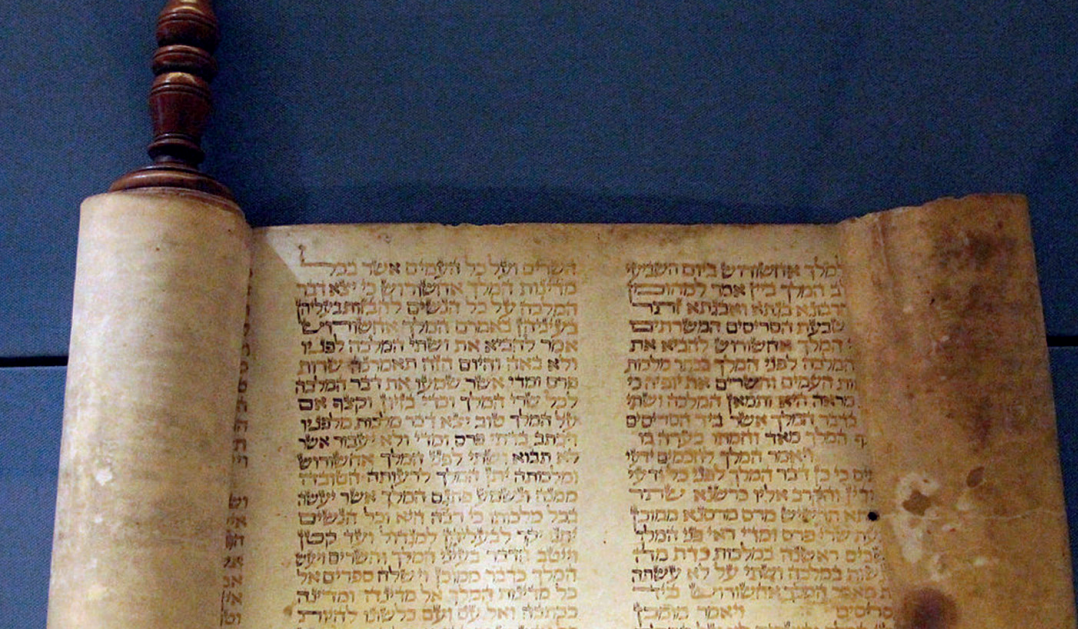 המלך אחשורוש ביום השביעי
לב המלך ביין אמר למהומן
חרבונא בגתא ואבגתא זתר
שבעת הסריסים המשרתים
המלך אחשורוש להביא את
המלכה לפני המלך בכתר מלכות
העמים והשרים את יופיה כי
מראה היא ותמאן המלכה ושתי
בדבר המלך אשר ביד הסריסים
המלך מאד וחמתו בערה בו
ויאמר המלך לחכמים ידעי
כי כן דבר המלך לפני כל ידעי
ודין והקרב אליו כרשנא שתר
תרשיש מרס מרסנא ממוכן
שרי פרס ומדי ראי פני המלך
ראשנה במלכות כדת מה
במלכה ושתי על לא עשתה
מאמר המלך אחשורוש ביד
הסריסים ויאמר מומכן
השרים ועל כל העמים אשר בכל
מדינות המלך אחשורוש כי יצא דבר
המלכה על כל הנשים להבזות בעליהן
בעיניהן באמרם המלך אחשורוש
אמר להביא את ושתי המלכה לפניו
ולא באה והיום הזה תאמרנה שרות
פרס ומדי אשר שמעו את דבר המלכה
לכל שרי המלך וכדי בזיון וקצף אם
על המלך טוב יצא דבר מלכות מלפניו
ויכתב בדתי פרס ומדי ולא יעבור אשר
לא תבוא ושתי לפני המלך אחשורוש
ומלכותה יתן המלך לרעותה הטובה
ממנה ונשמע פתגם המלך אשר יעשה
בכל מלכותו כי רבה היא וכל הנשים
יתנו יקר לבעליהן למגדול ועד קטן
וייטב הדבר בעיני המלך והשרים ויעש
המלך כדבר ממוכן וישלח ספרים אל
כל מדינות המלך אל מדינה ומדינה
ככתבה ואל עם ועם כלשונו להיות